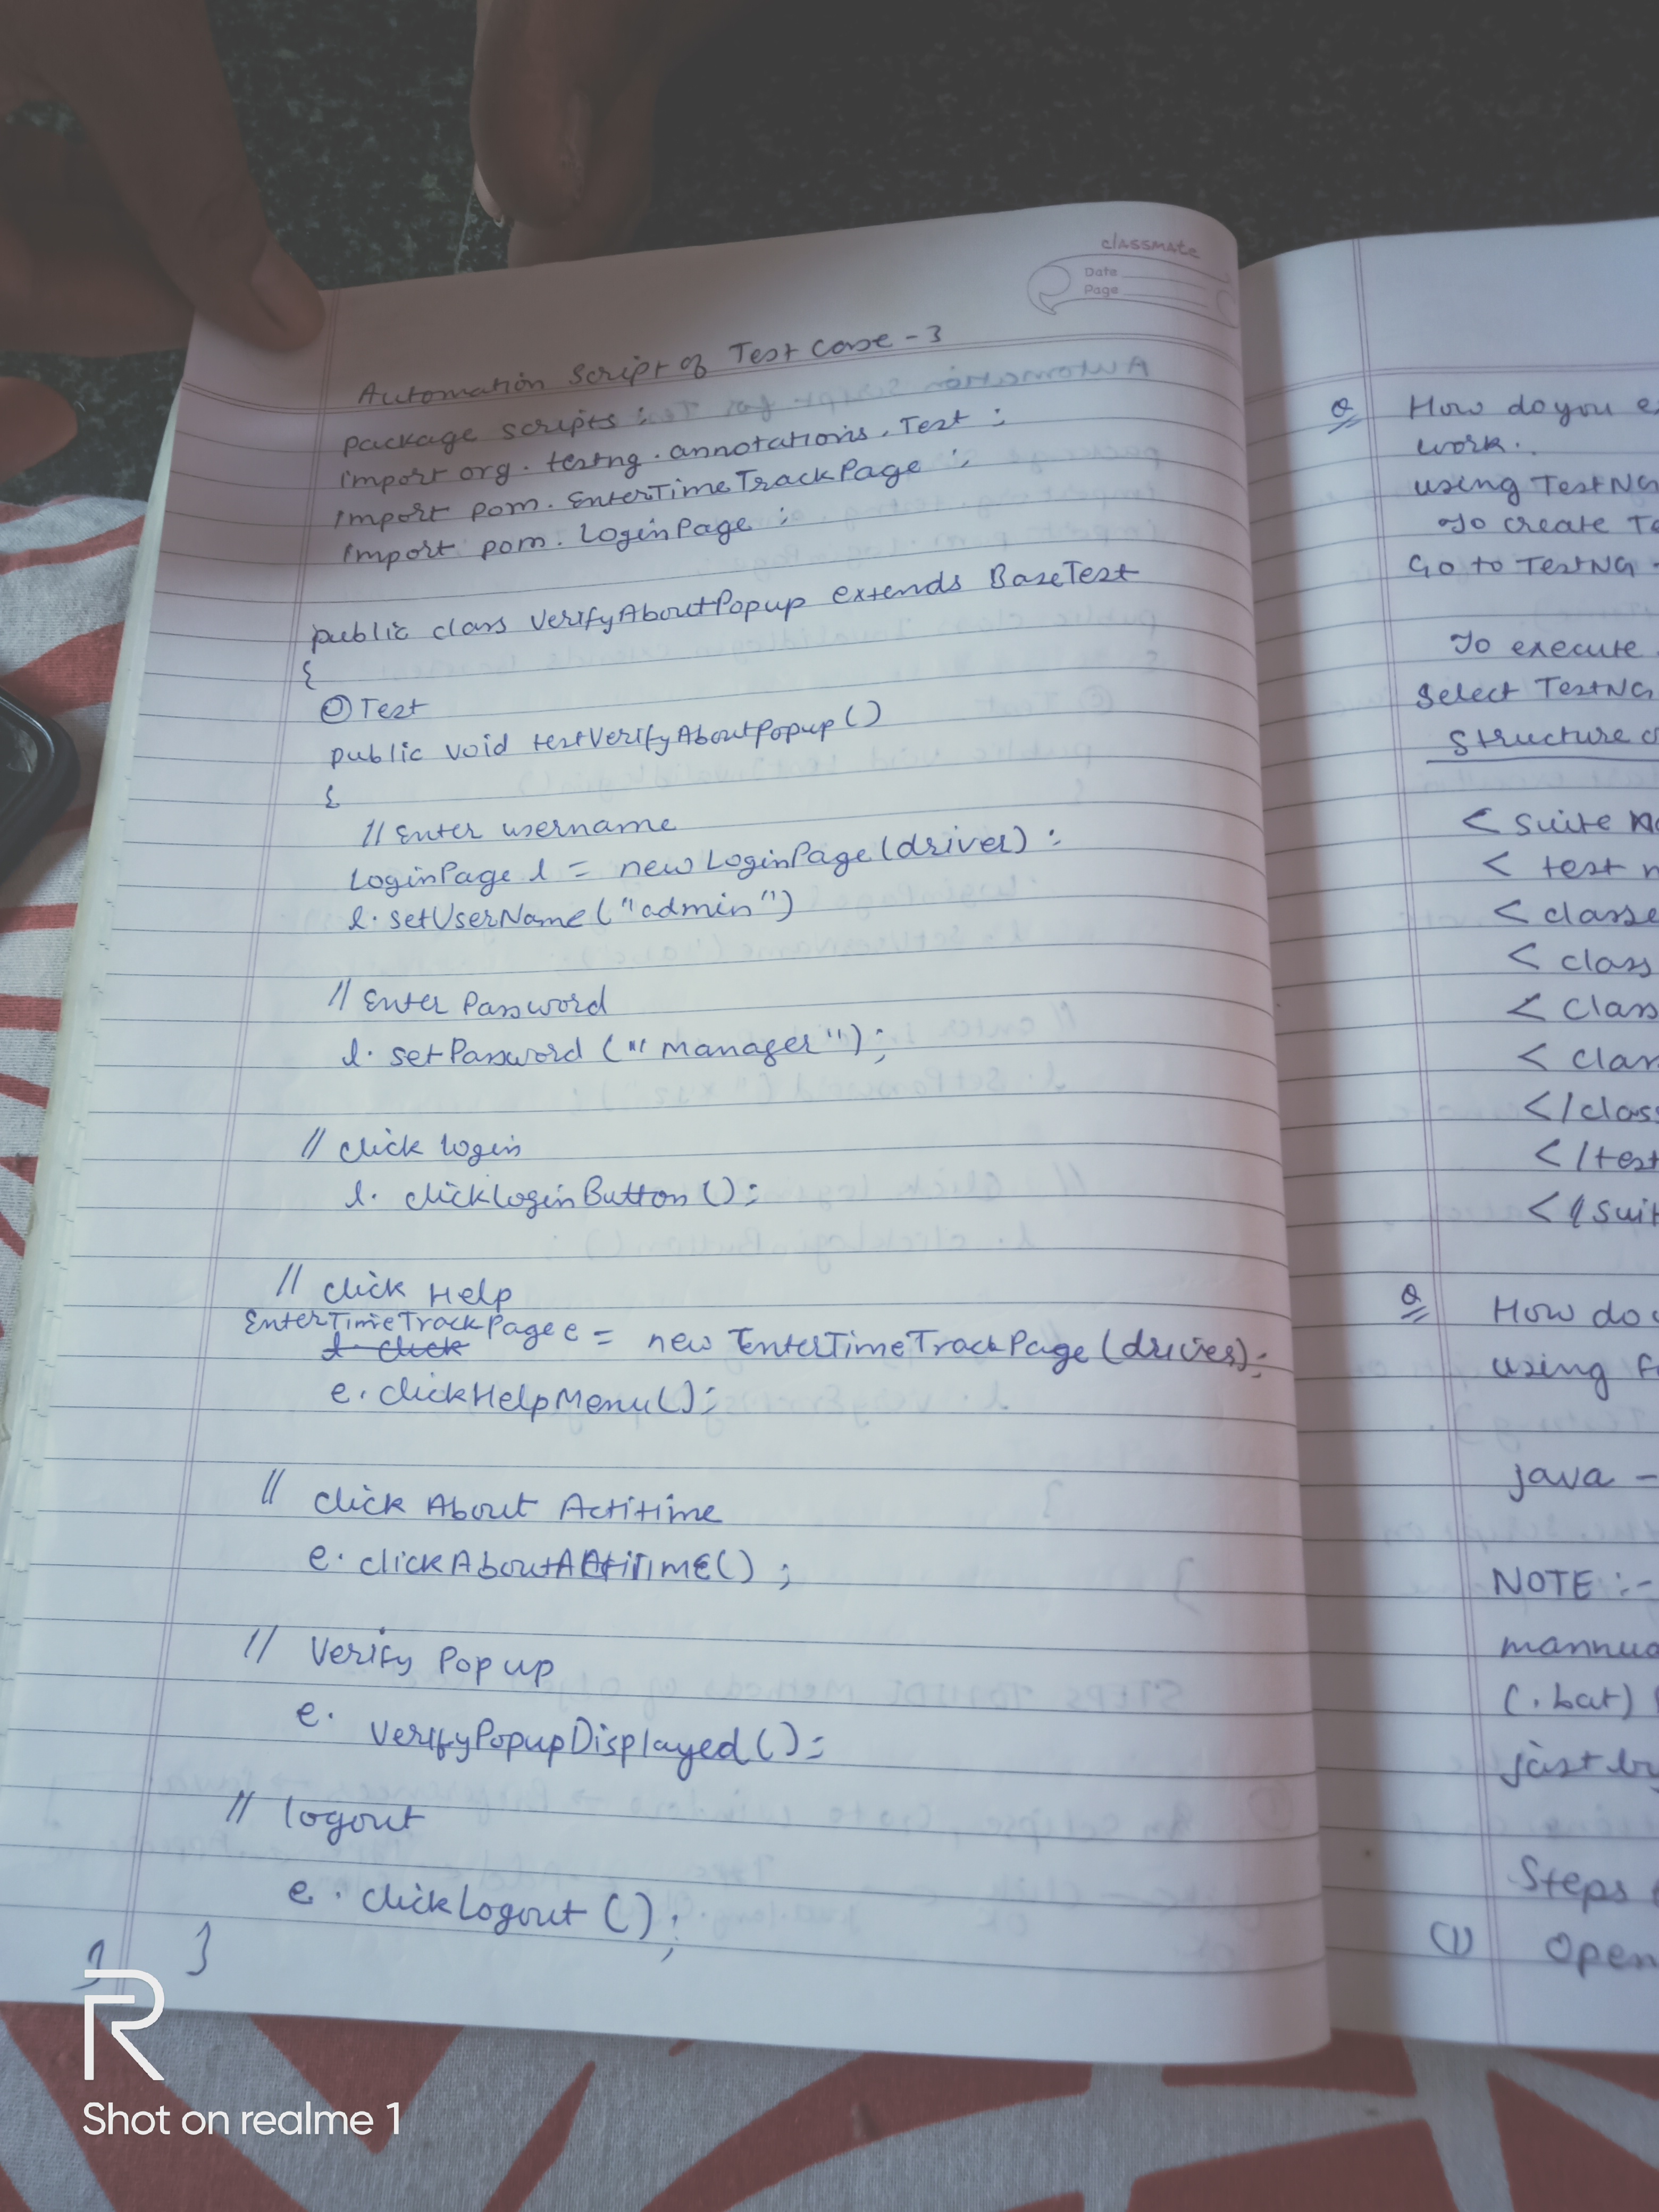 classmate
Date
Page
Automation Script of Test Case - 3
package scripts ;
import org. testng. annotations. Test ;
import pom. EnterTimeTrackPage ;
import pom. LoginPage ;
public class VerifyAboutPopup extends BaseTest
{
@Test
public void testVerifyAboutPopup()
{
// Enter username
LoginPage l = new LoginPage(driver) ;
l. setUserName("admin")
// Enter Password
l. setPassword ("Manager");
// click login
l. clickLoginButton ();
// click Help
EnterTimeTrackPage e = new EnterTimeTrackPage (driver);
l. click
e. clickHelpMenu();
// click About Actitime
e. clickAboutActiTIME() ;
// Verify Pop up
e. verifyPopupDisplayed ();
// logout
e. clickLogout ();
}
}
Q How do you
work.
using TestNG
To create
Go to TestNG
To execute
Select TestNG
Structure
< suite
< test
<
< class
<
<
</
</test
</
Q How do
using
java -
NOTE :-
(.bat)
Steps
(1) Open
R
Shot on realme 1